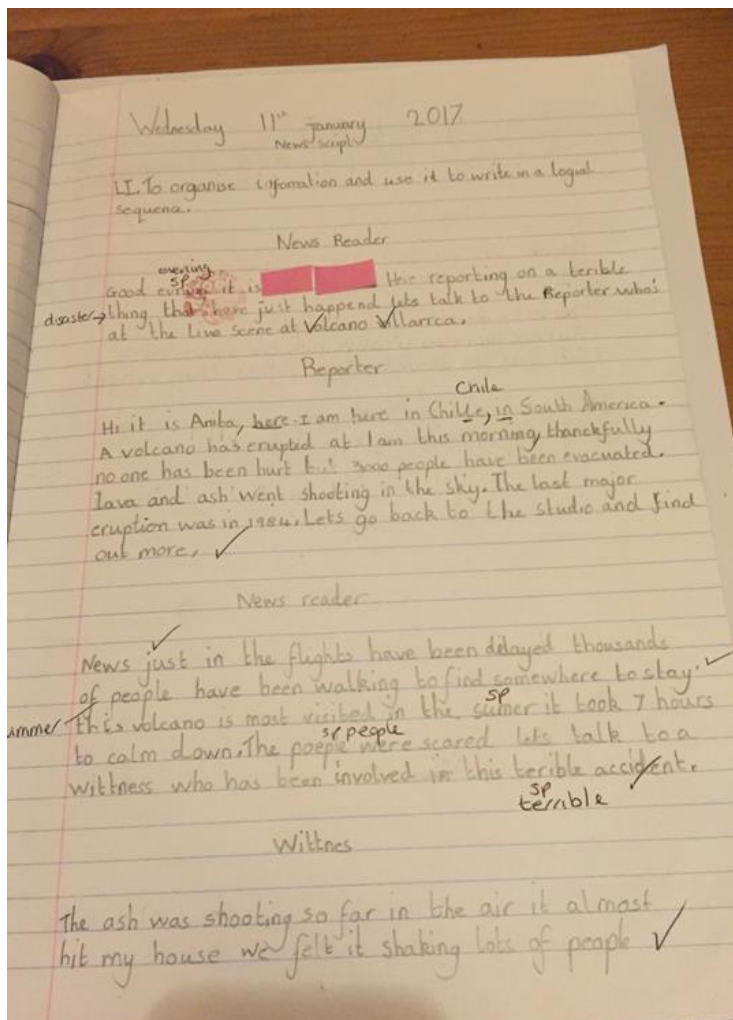 Wednesday 11th January 2017
News script
LI. To organise infomation and use it to write in a logial
sequence.
News Reader
evening
sp
Good it is Here reporting on a terible
disaster → thing that have just happend lets talk to the Reporter who's
at the Live scene at Volcano Villarrca.
Reporter
Chile
Hi it is Anita, here. I am here in Chille, in South America.
A volcano has erupted at 1am this morning, thanckfully
no one has been hurt but 3000 people have been evacuated.
lava and ash went shooting in the sky. The last major
eruption was in 1984. Lets go back to the studio and find
out more.
News reader
News just in the flights have been delayed thousands
of people have been walking to find somewhere to stay.
sp
ummer this volcano is most visited in the sumer it took 7 hours
sp people
to calm down. The poeple were scared lets talk to a
wittness who has been involved in this terible accident.
sp
terrible
Wittnes
The ash was shooting so far in the air it almost
hit my house we felt it shaking lots of people